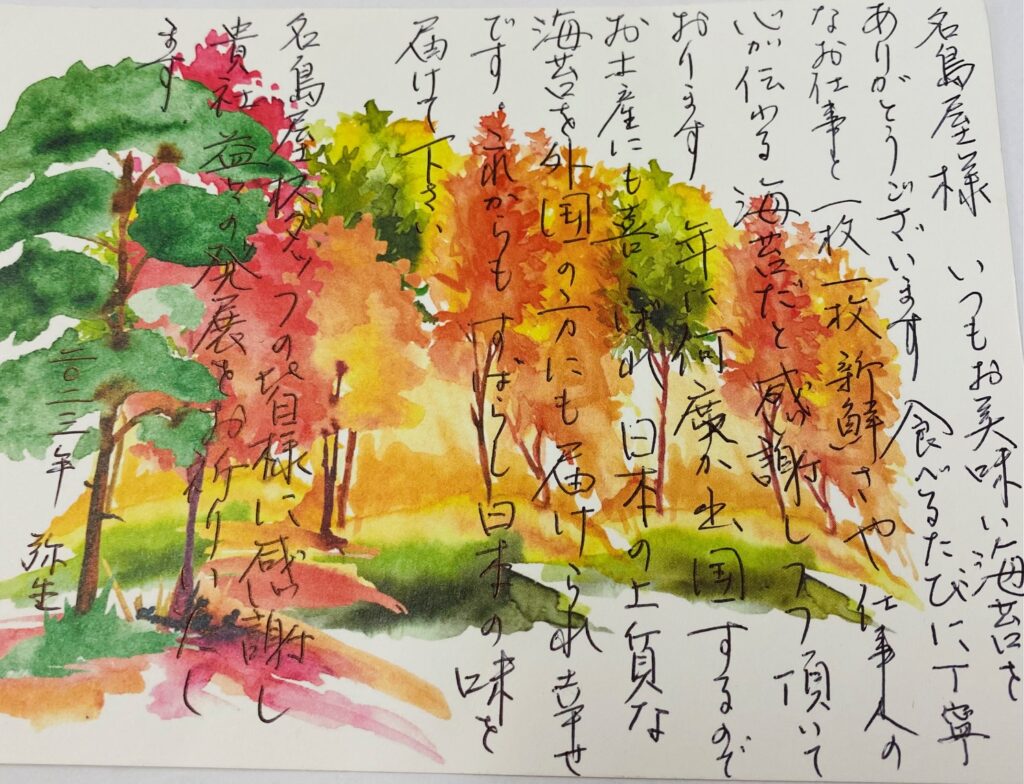 名島屋様 いつもお美味い海苔を
ありがとうございます 食べるたびに丁寧
なお仕事と一枚一枚新鮮さや仕事人の
心が伝わる海苔だと感謝しつつ頂いて
おります 年に何度か出国するので
お土産にも喜ばれ日本の上質な
海苔を外国の方にも届けられ幸せ
です。これからもすばらし日本の味を
届けて下さい
名島屋スタッフの皆様に感謝し
貴社益々の発展をお祈りいたし
ます
二〇二三年 弥生